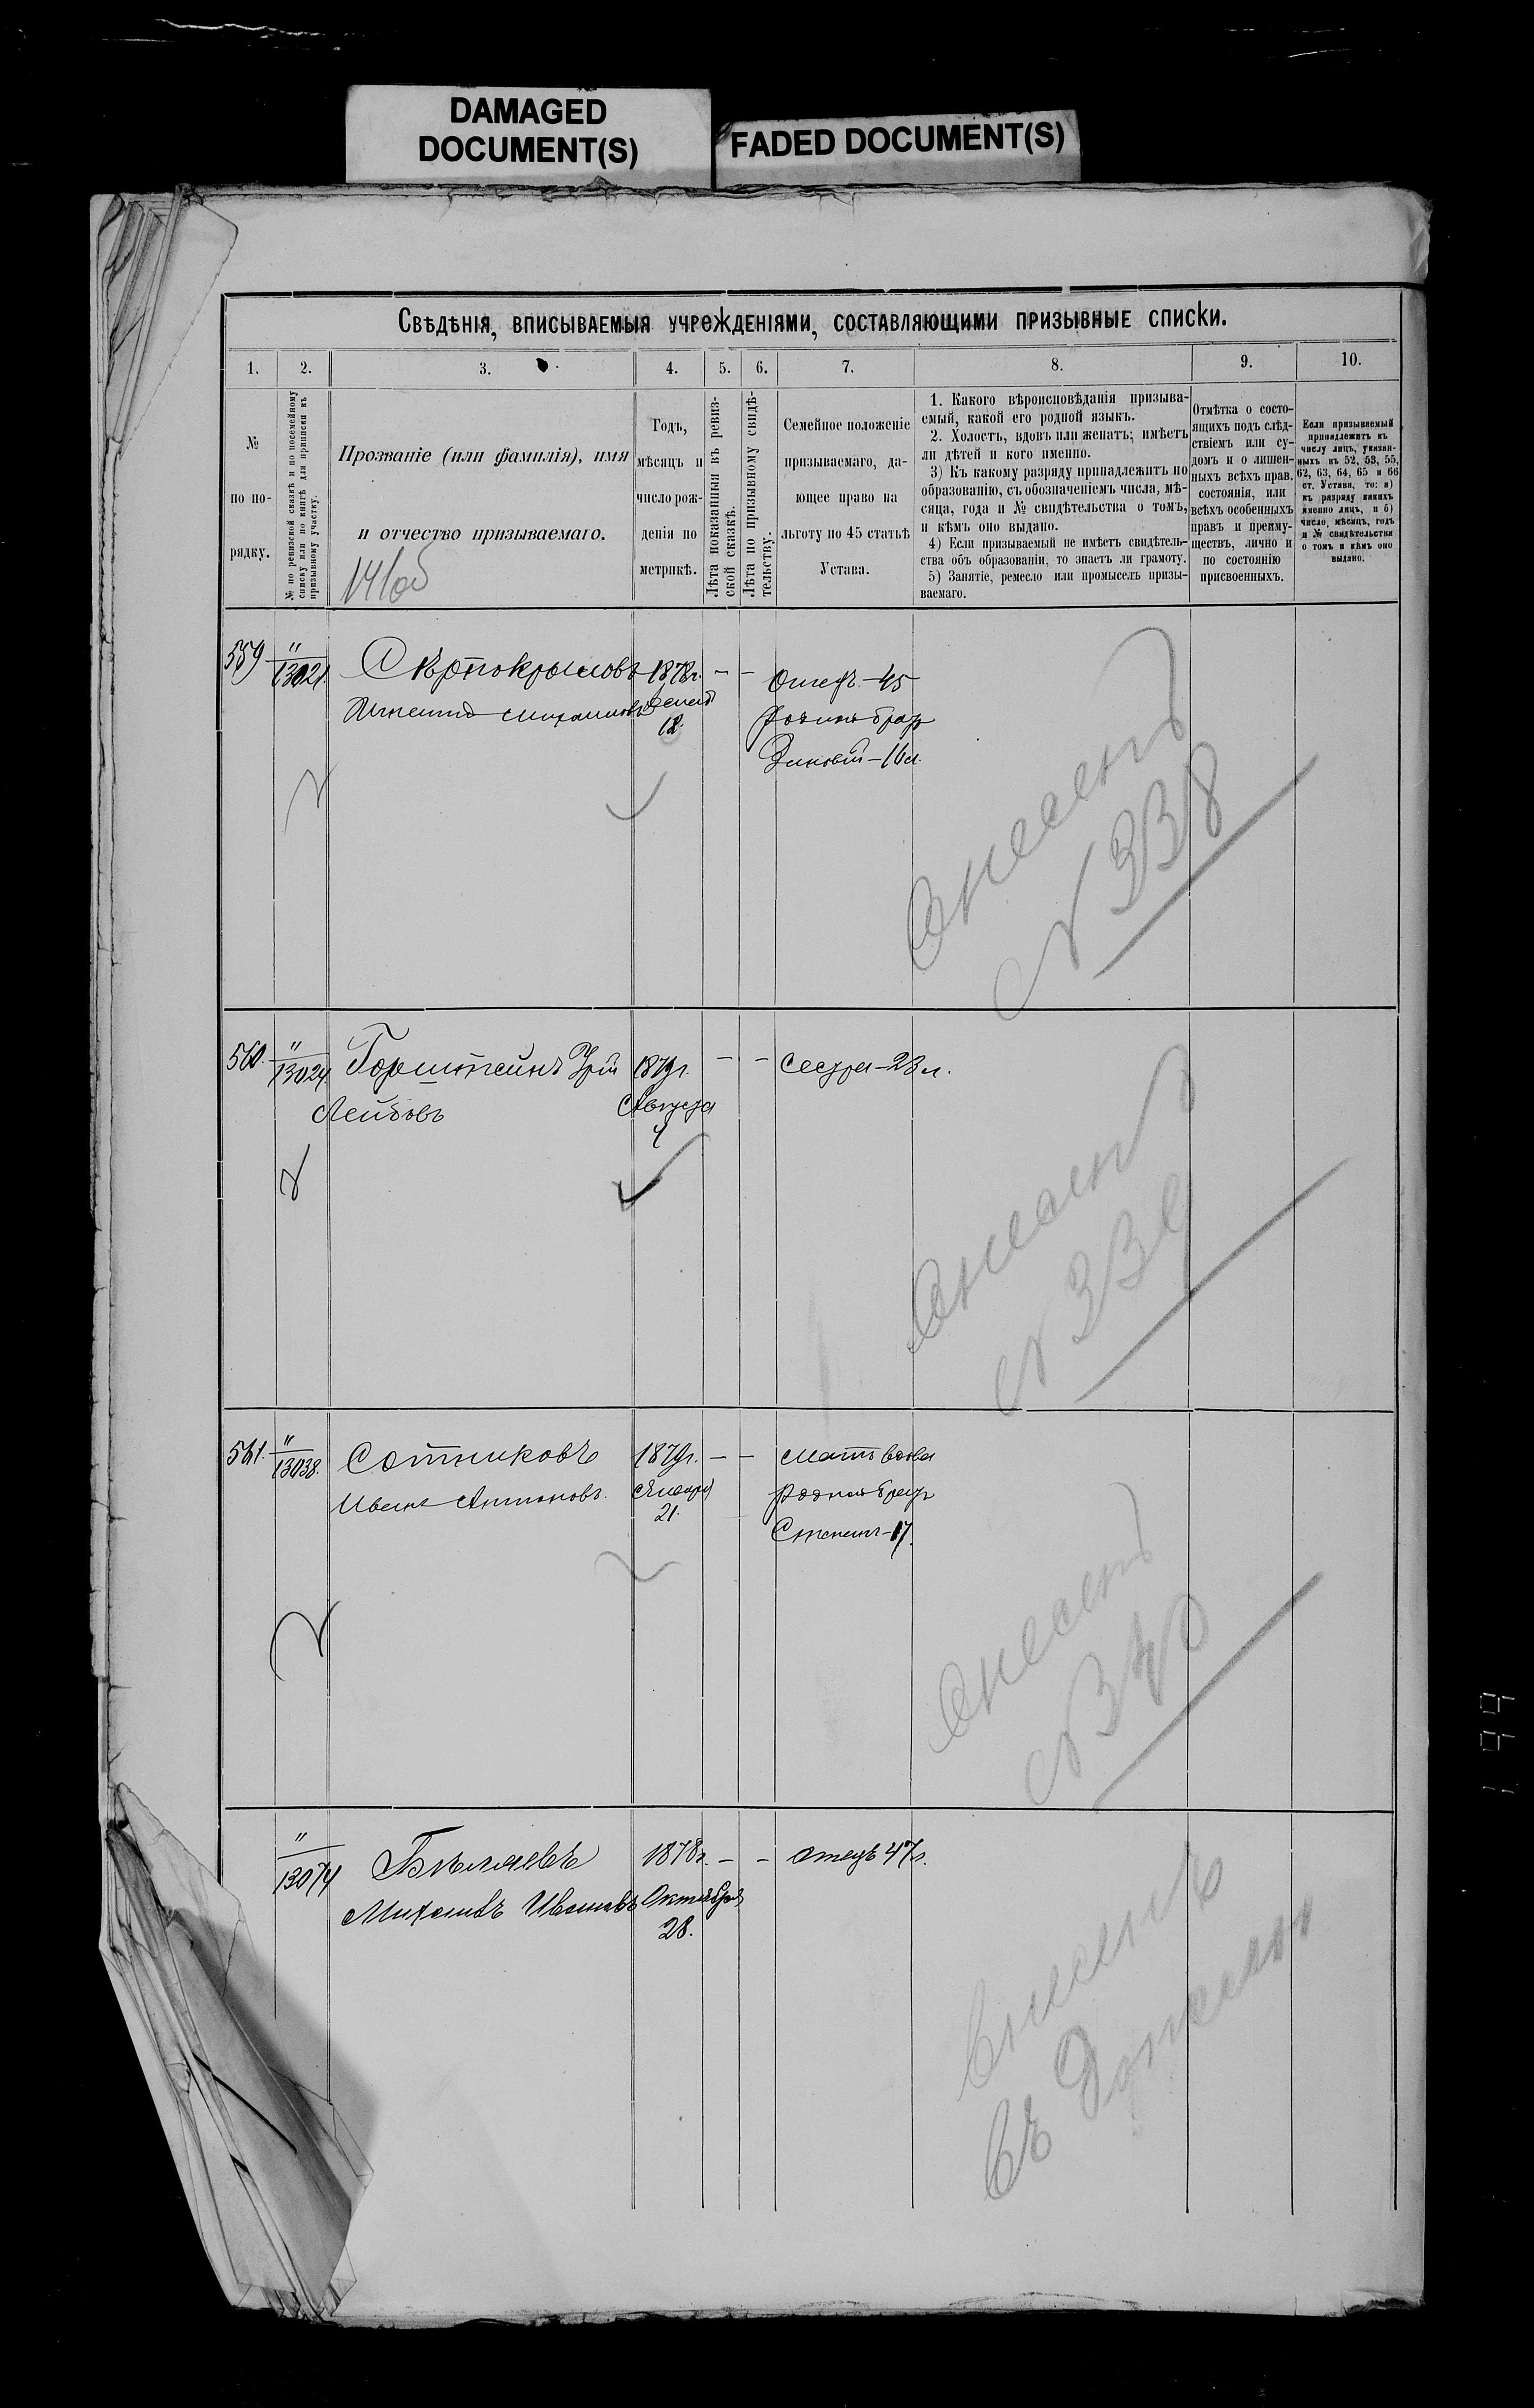 DAMAGED
DOCUMENT(S)
FADED DOCUMENT(S)
Свѣдѣнія, вписываемыя учрежденіями, составляющими призывные списки.
1.
2.
3.
4.
5.
6.
7.
8.
9.
10.
№
по по-
рядку.
№ по ревизской сказкѣ и по посемейному
списку или по книгѣ для приписки къ
призывному участку.
Прозваніе (или фамилія), имя
и отчество призываемаго.
Годъ,
мѣсяцъ и
число рож-
денія по
метрикѣ.
Лѣта показанныя въ ревиз-
ской сказкѣ.
Лѣта по призывному свидѣ-
тельству.
Семейное положеніе
призываемаго, да-
ющее право на
льготу по 45 статьѣ
Устава.
1. Какого вѣроисповѣданія призыва-
емый, какой его родной языкъ.
2. Холостъ, вдовъ или женатъ; имѣетъ
ли дѣтей и кого именно.
3) Къ какому разряду принадлежитъ по
образованію, съ обозначеніемъ числа, мѣ-
сяца, года и № свидѣтельства о томъ,
и кѣмъ оно выдано.
4) Если призываемый не имѣетъ свидѣтель-
ства объ образованіи, то знаетъ ли грамоту.
5) Занятіе, ремесло или промыселъ призы-
ваемаго.
Отмѣтка о состо-
ящихъ подъ слѣд-
ствіемъ или су-
домъ и о лишен-
ныхъ всѣхъ прав.
состоянія, или
всѣхъ особенныхъ
правъ и преиму-
ществъ, лично и
по состоянію
присвоенныхъ.
Если призываемый
принадлежитъ къ
числу лицъ, указан-
ныхъ въ 52, 53, 55,
62, 63, 64, 65 и 66
ст. Устава, то: а)
къ разряду какихъ
именно лицъ, и б)
число, мѣсяцъ, годъ
и № свидѣтельства
о томъ и кѣмъ оно
выдано.
559
"
13021.
1878г. — —
18.
Отецъ — 45
родной братъ
Зиновій — 16 л.
внесенъ
№ 338
560.
"
13024
Горштейнъ
Лейбовъ
1879г. — —
Августа
4
сестра — 23 л.
внесенъ
№ 339
561.
"
13038.
Сотниковъ
Иванъ Антоновъ.
1879г. — —
Января
21.
мать вдова
родной братъ
Степанъ — 17.
внесенъ
№ 340
"
13074
Бѣляевъ
Михаилъ Ивановъ
1878г. — —
Октября
28.
отецъ 47 л.
внесенъ
въ
199